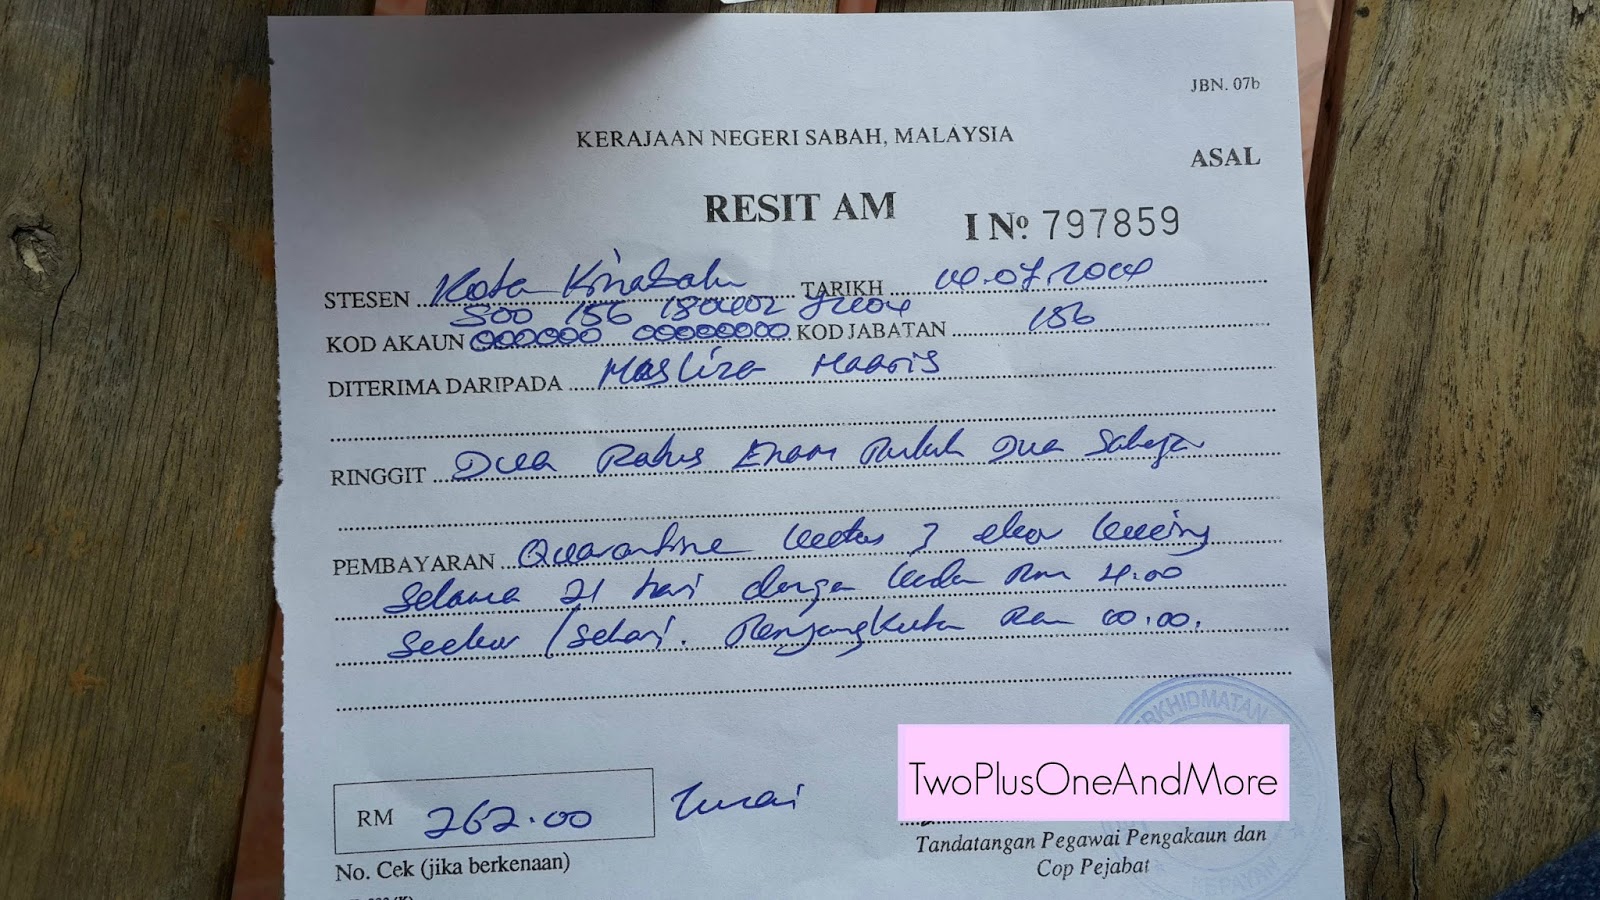 JBN. 07b
KERAJAAN NEGERI SABAH, MALAYSIA
ASAL
RESIT AM
I Nº. 797859
STESEN Kota Kinabalu TARIKH
500 156
KOD AKAUN 000000 00000000 KOD JABATAN 156
DITERIMA DARIPADA Masliza Maaris
RINGGIT Dua Ratus Enam Puluh Dua Sahaja
PEMBAYARAN Quarantine untuk 3 ekor kucing
Selama 21 hari dengan kadar RM 4.00
Seekor / sehari. Pengangkutan RM 10.00.
PERKHIDMATAN
TwoPlusOneAndMore
RM 262.00 Tunai
Tandatangan Pegawai Pengakaun dan
Cop Pejabat
KEPAYAN
No. Cek (jika berkenaan)